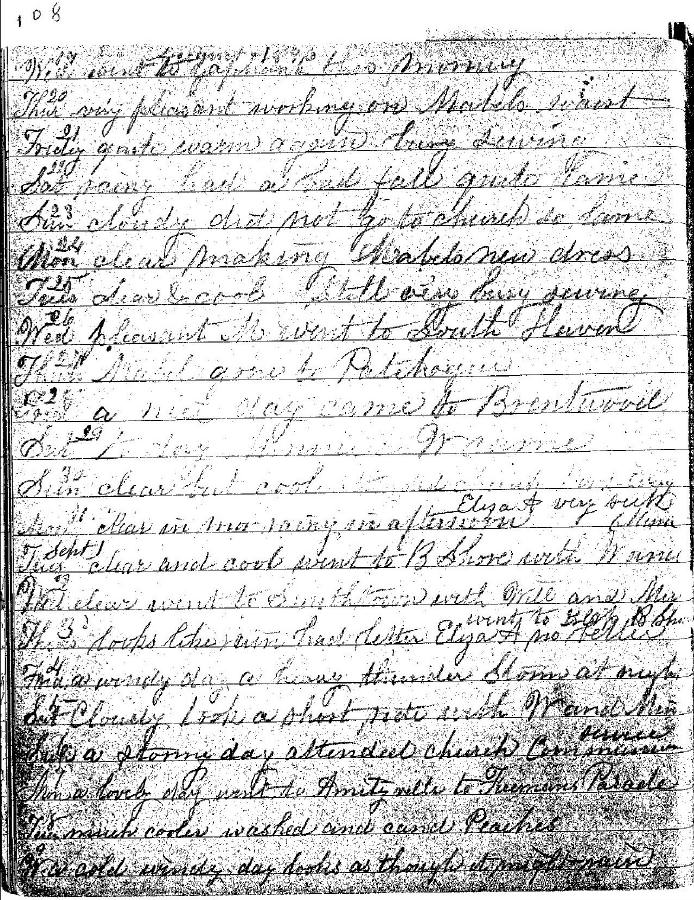 108
August 1896
Wed 19 went to Yaphank this morning
Thur 20 very pleasant working on Mabels waist
Friday 21 quite warm again busy sewing
Sat 22 rainy had a bad fall quite lame
Sun 23 cloudy did not go to church so lame
Mon 24 clear making Mabels new dress
Tues 25 clear & cool Still very busy sewing
Wed 26 pleasant M went to South Haven
Thur 27 Mabel gone to Patchogue
28 a nice day came to Brentwood
Sat 29 to day W came
Sun 30 clear but cool
Eliza A very sick
Mon 31 clear in mor rainy in afternoon
Tues Sept 1 clear and cool went to B Shore with W
Wed 2 clear went to Smithtown with Will and Min
went to B Sh
Thurs 3 looks like rain had letter Eliza A no better
Frid 4 a windy day a heavy thunder Storm at night
Sat 5 Cloudy took a short ride with W and Min
Sun 6 a stormy day attended church Communion
service
Mon 7 a lovely day went to Amityville to Firemans Parade
Tues 8 much cooler washed and cand Peaches
W 9 a cold windy day looks as though it might rain